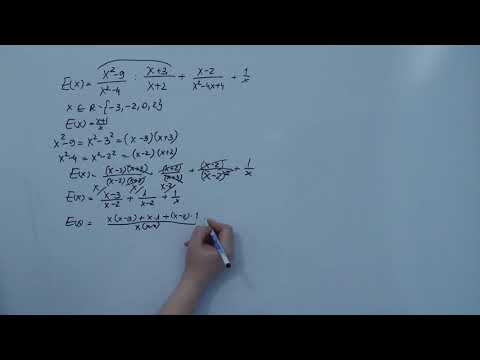 E(x) = x²-9 / x²-4 : x+3 / x+2 + x-2 / x²-4x+4 + 1 / x
x ∈ R - {-3, -2, 0, 2}
E(x) = x+1 / x
x²-9 = x²-3² = (x-3)(x+3)
x²-4 = x²-2² = (x-2)(x+2)
E(x) = (x-3)(x+3) / (x-2)(x+2) · (x+2) / (x+3) + (x-2) / (x-2)² + 1 / x
E(x) = x-3 / x-2 + 1 / x-2 + 1 / x
E(x) = x(x-3) + x·1 + (x-2)·1 / x(x-2)